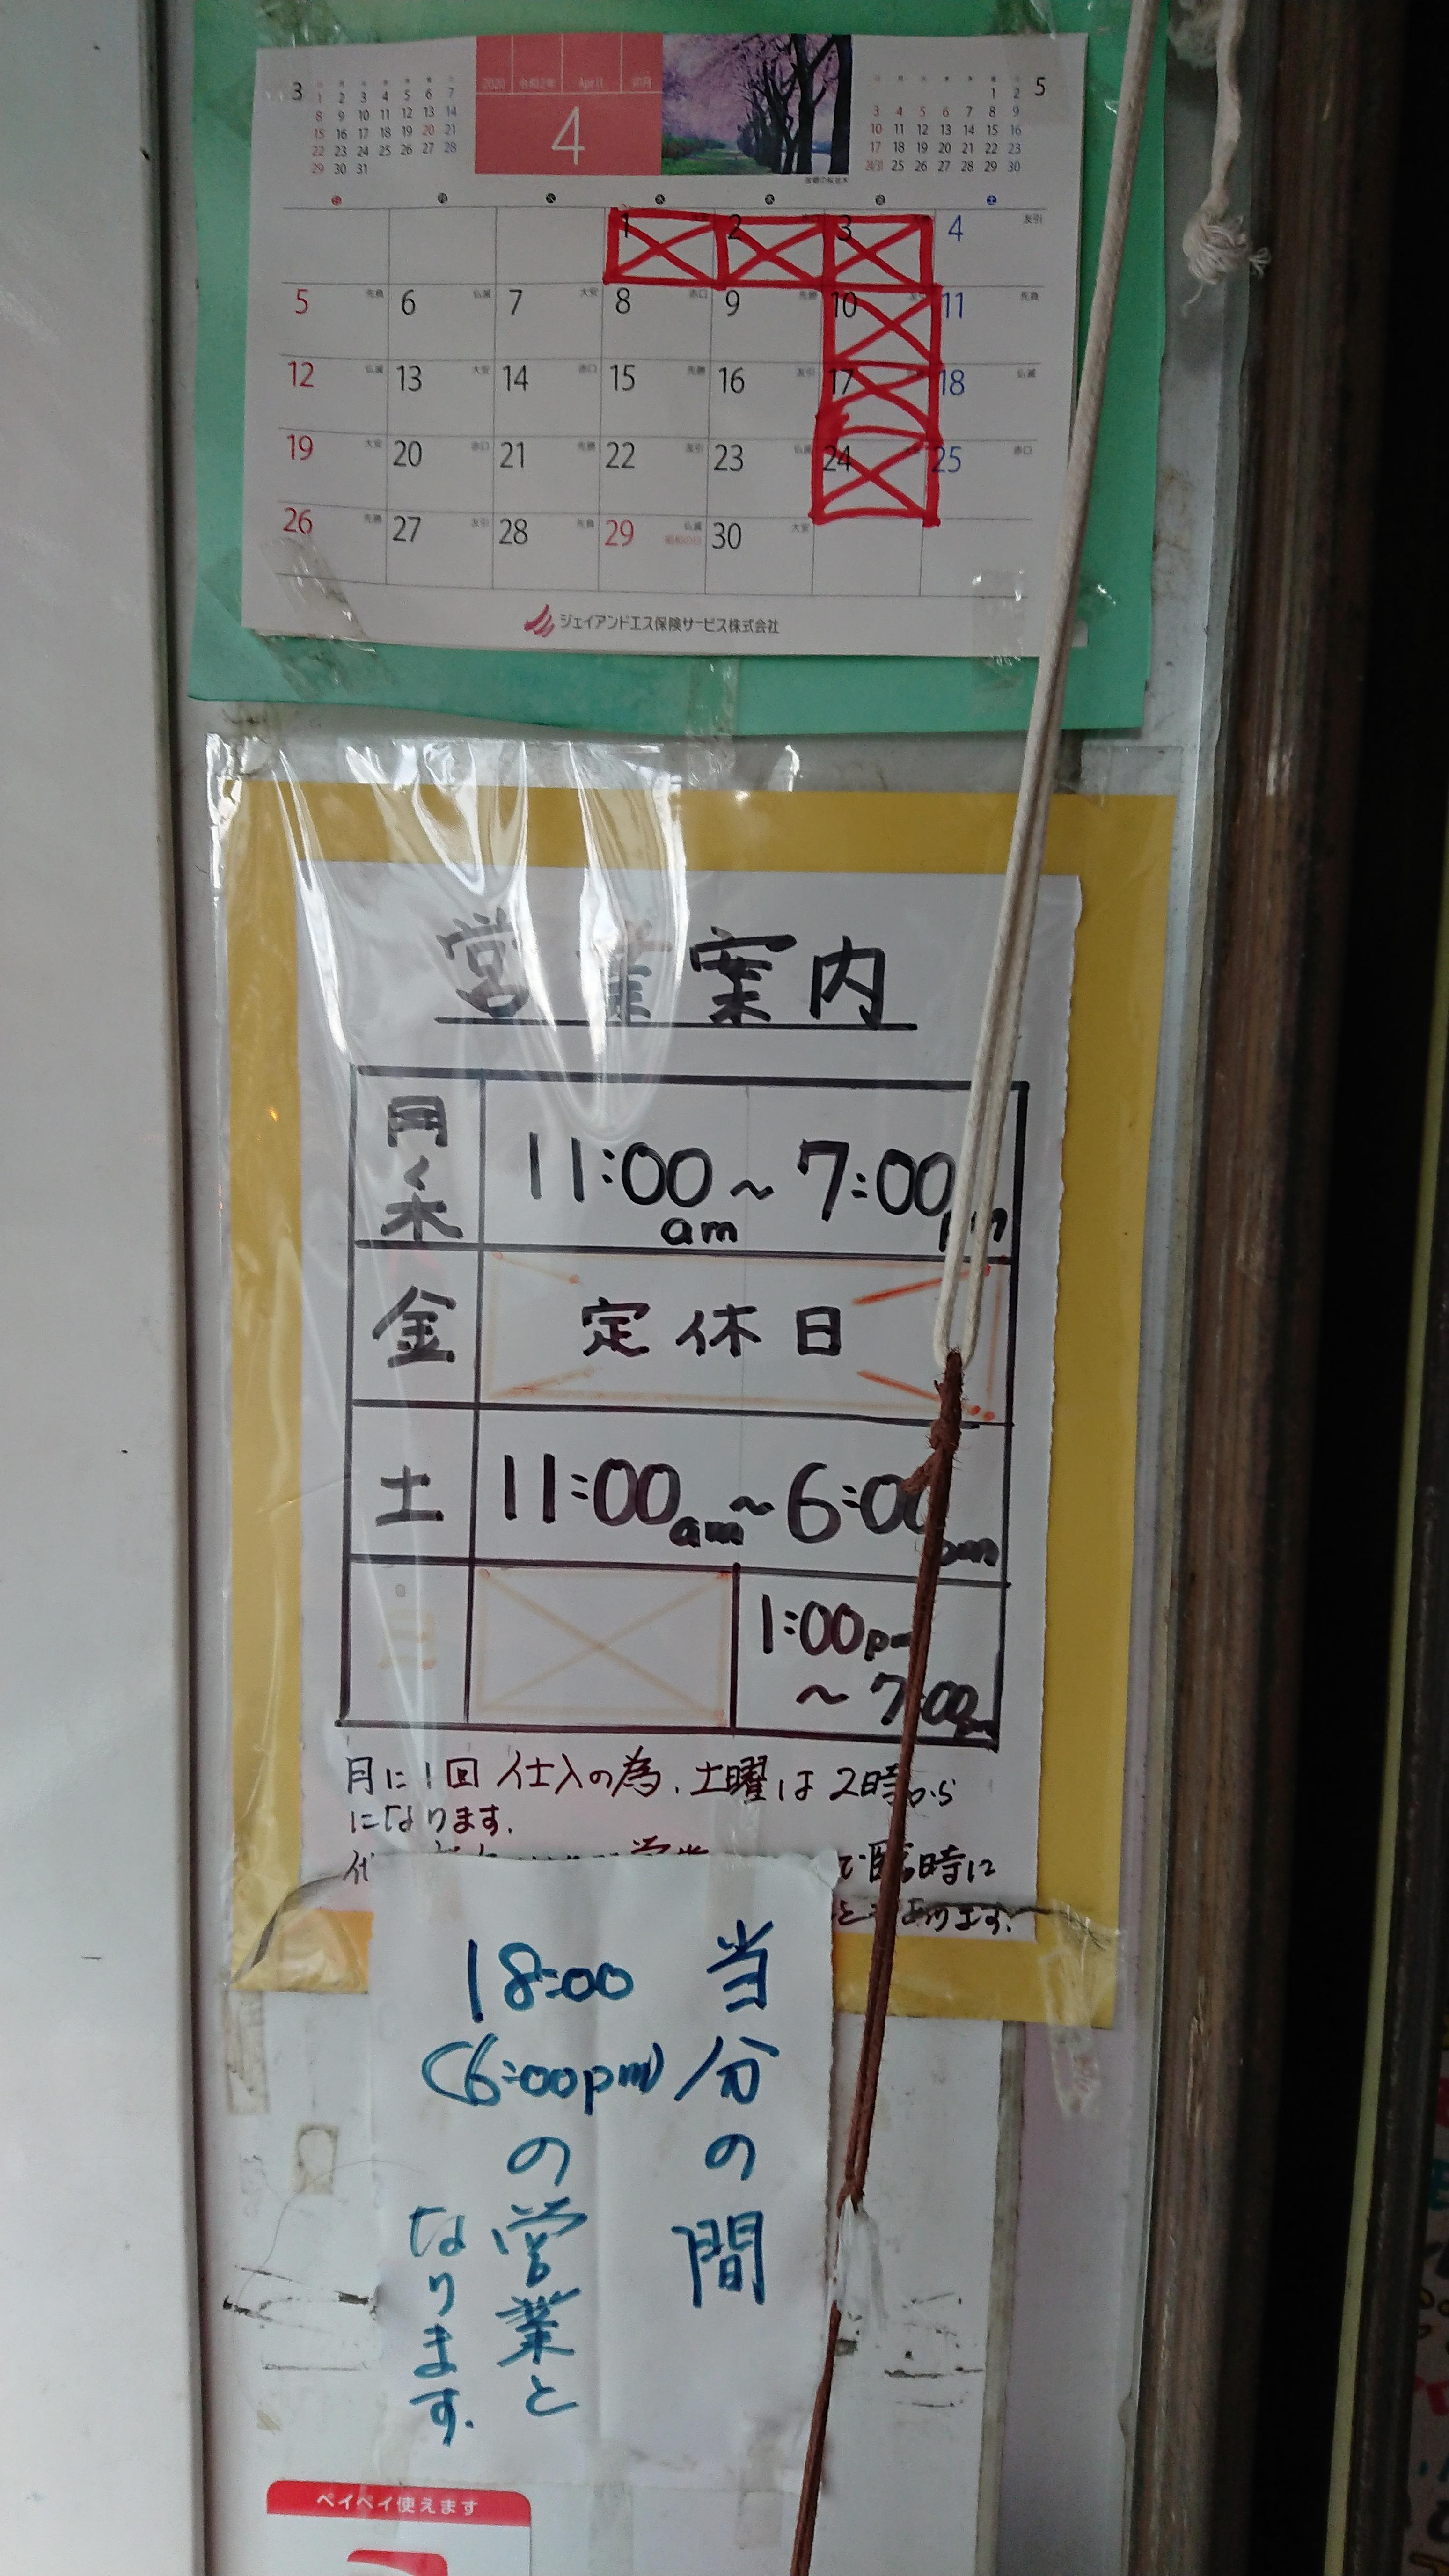 3
1 2 3 4 5 6 7
8 9 10 11 12 13 14
15 16 17 18 19 20 21
22 23 24 25 26 27 28
29 30 31
2020 令和2年 April 卯月
4
5
1 2
3 4 5 6 7 8 9
10 11 12 13 14 15 16
17 18 19 20 21 22 23
24/31 25 26 27 28 29 30
日 月 火 水 木 金 土
1 2 3 4 友引
5 先負 6 仏滅 7 大安 8 赤口 9 先勝 10 11 先負
12 仏滅 13 大安 14 赤口 15 先勝 16 友引 17 18 仏滅
19 大安 20 赤口 21 先勝 22 友引 23 仏滅 24 25 赤口
26 先勝 27 友引 28 先負 29 仏滅 昭和の日 30 大安
ジェイアンドエス保険サービス株式会社
営業案内
月〜木 11:00am 〜 7:00pm
金 定休日
土 11:00am 〜 6:00pm
日 1:00pm
〜 7:00pm
月に1回仕入の為、土曜は2時から
になります。
で臨時に
あります。
当分の間
18:00
(6:00pm)
の営業と
なります.
ペイペイ使えます